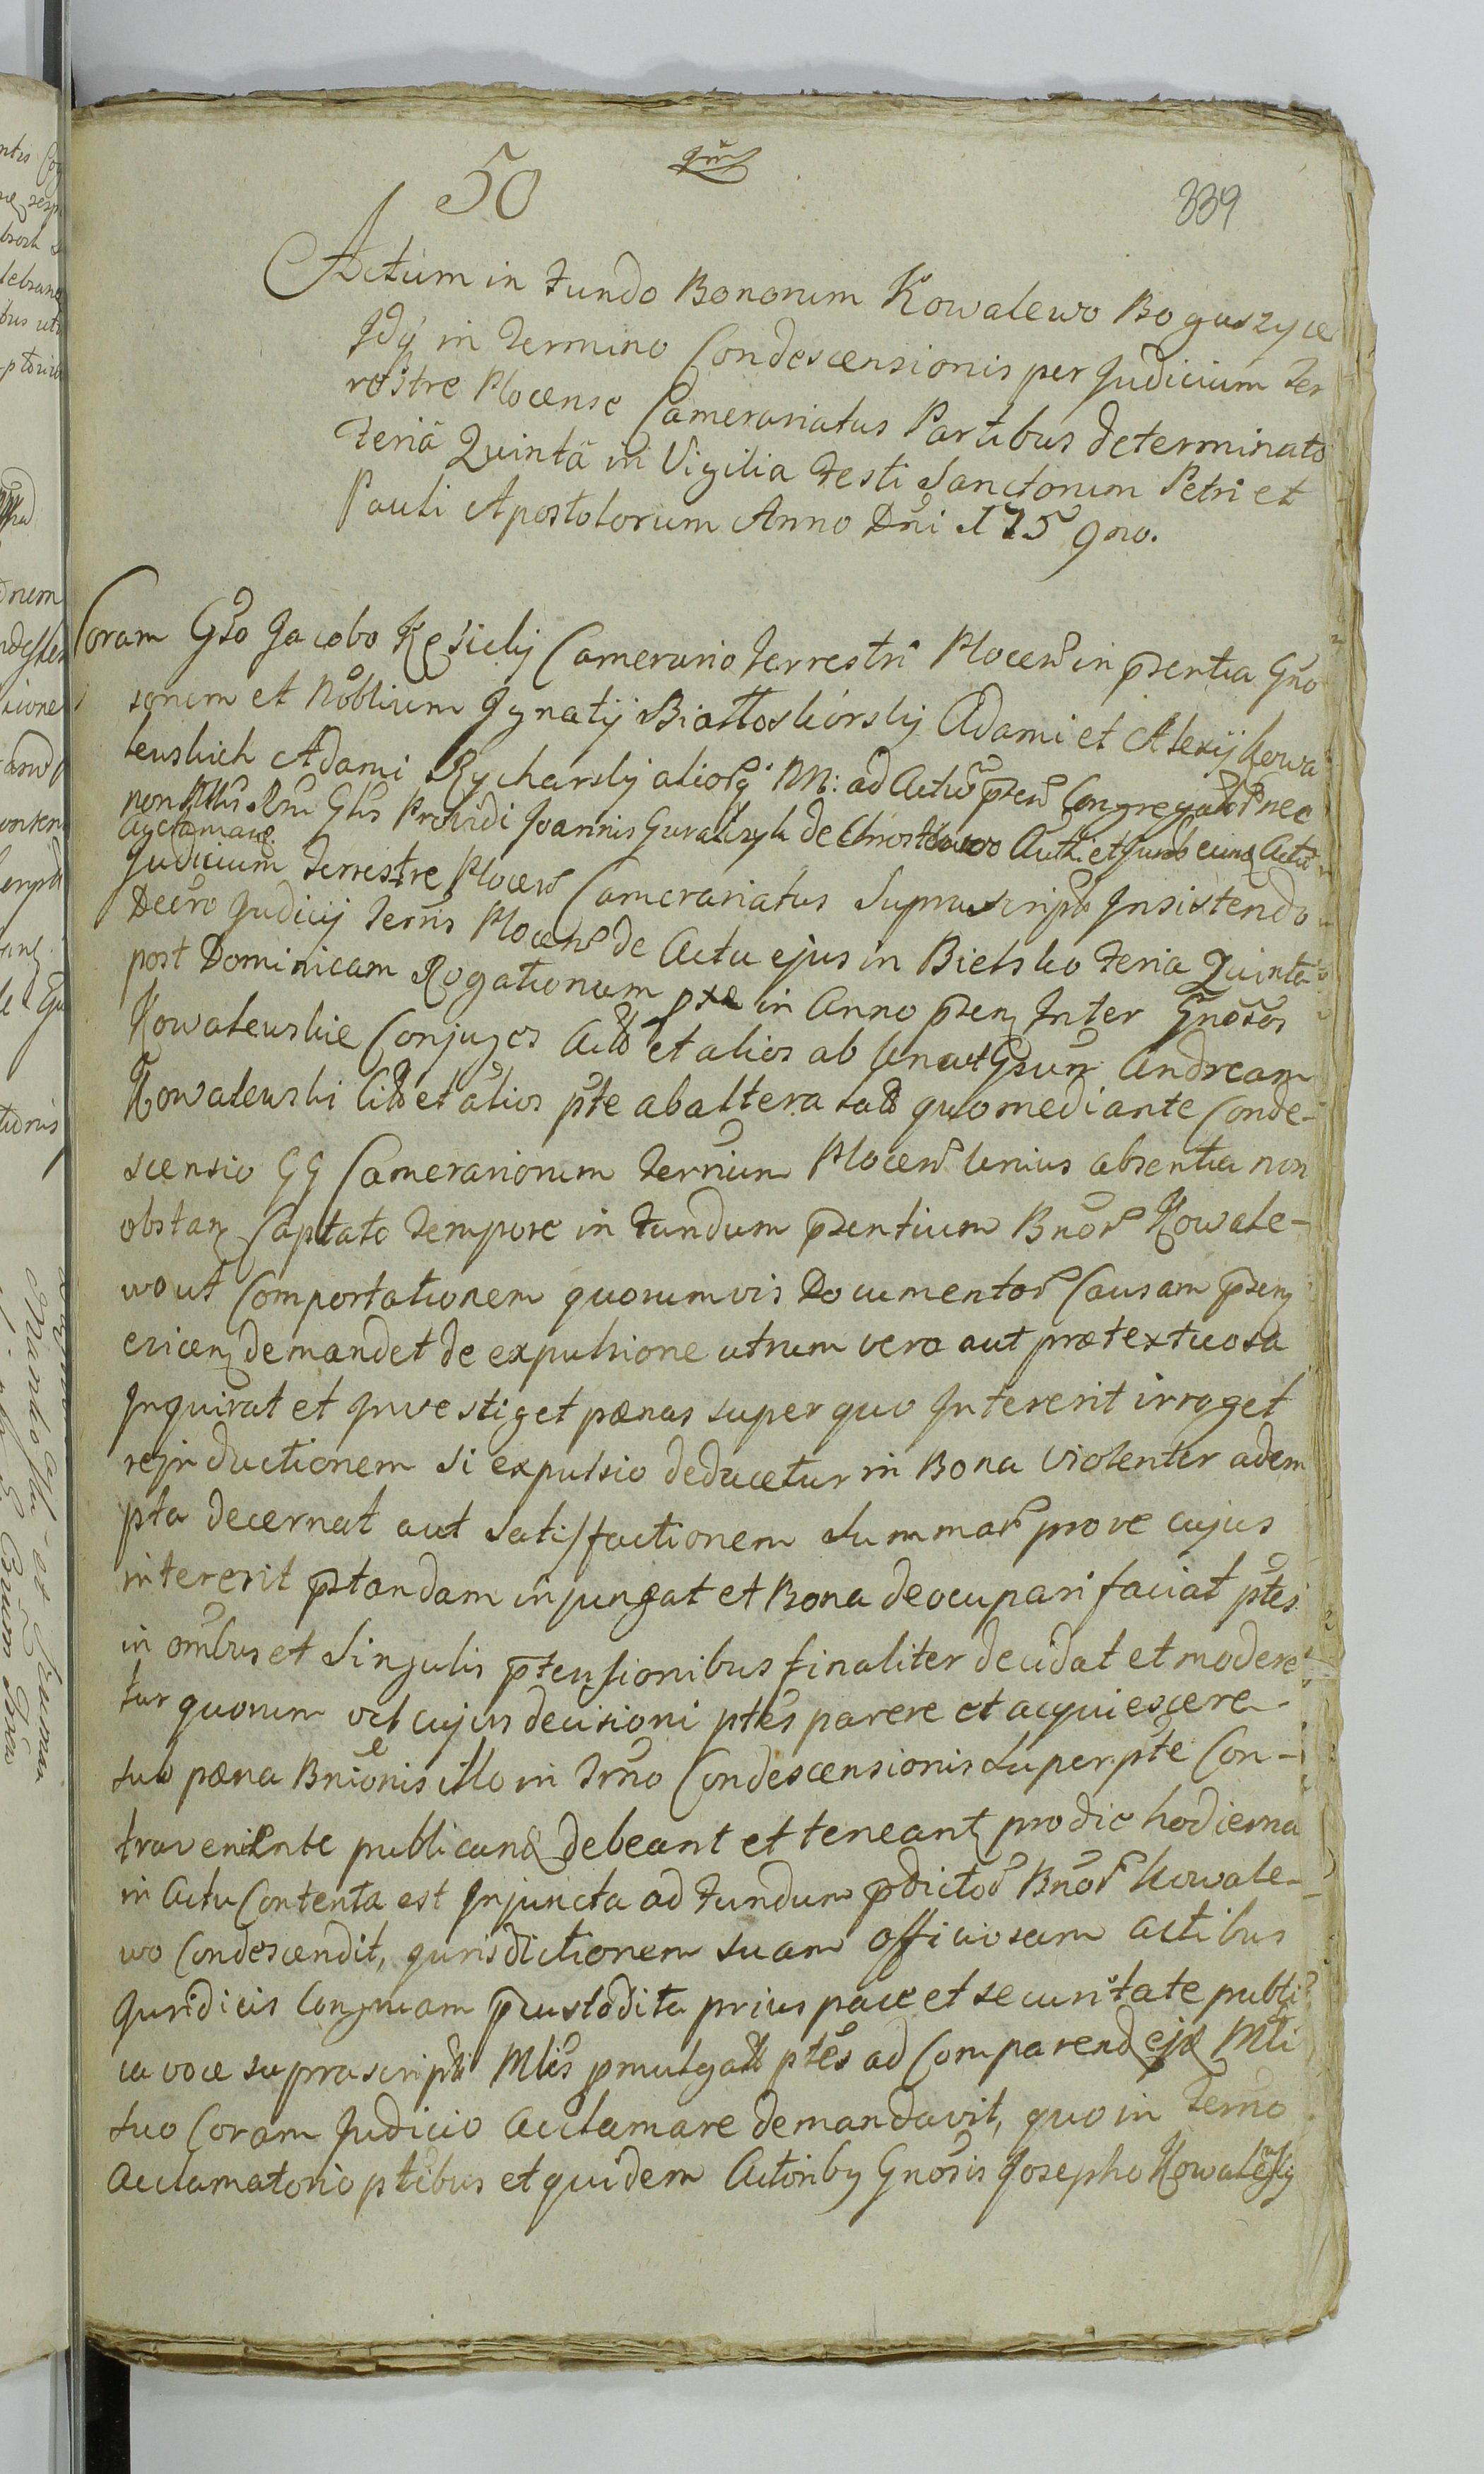 50
339
Actum in Fundo Bonorum Kowalewo Boguszyce
Jdq in Termino Condescensionis per Judicium Ter
restre Plocense Camerariatus Partibus determinato
Feriâ Quintâ in Vigilia Festi Sanctorum Petri et
Pauli Apostolorum Anno Dni 1759no.
Coram Gso Jacobo Kęsicky Camerario Terrestri Plocen in pzentia Gno
sorum et Noblium Ignatij Białłoskorsky Adami et Alexij Kowa
lewskich Adami Rycharsky aliorq NN: ad Actum pzen Congregator nec
non Mlis Rni Glis Providi Joannis Guralczyk de Chrostkowo Auth: et Jurob eumq Actu
acclamare.
Judicium Terrestre Plocen Camerariatus Suprascript Insistendo
Decro Judicij Terris Plocen de Actu ejus in Bielsko Feria Quinta
post Dominicam Rogationum pxa in Anno pzenq Inter Gnosos
Kowalewskie Conjuges Act et alios ab una et Gsum Andream
Kowalewski Citt et alios pte ab altera lat quo mediante Conde-
scensio GG Camerariorum Terrium Plocen unius absentia non
obstanq Captato tempore in Fundum pzentium Bnor Kowale-
wo ut Comportationem quorumvis Documentor Causam pzenq
ericenq demandet de expulsione utrum vera aut prætextuosa
Inquirat et Investiget pænas super quo Intererit irroget
rejnductionem si expulsio deducetur in Bona violenter adem
pta decernat aut Satisfactionem Summar prove cujus
intererit pstandam injungat et Bona deocupari faciat ptes
in ombus et Singulis ptensionibus finaliter decidat et modere
tur quorum vel cujus decisioni ptes parere et acquiescere
sub pæna Bnionis illo in Trno Condescensionis super pte Con-
traveniente publicanq debeant et teneantq pro die hodierna
in Actu Contenta est Injuncta ad Fundum pdictor Bnor Kowale-
wo Condescendit, Jurisdictionem suam officiosam actibus
Juridicis Congruam pcustodita prius pace et securitate publi
ca voce suprascripti Mlis pmulgatt ptes ad Comparend eja Mli
suo Coram Judicio acclamare demandavit, quo in Terno
acclamatorio ptibus et quidem Actoriby Gnosis Josepho Kowalesky